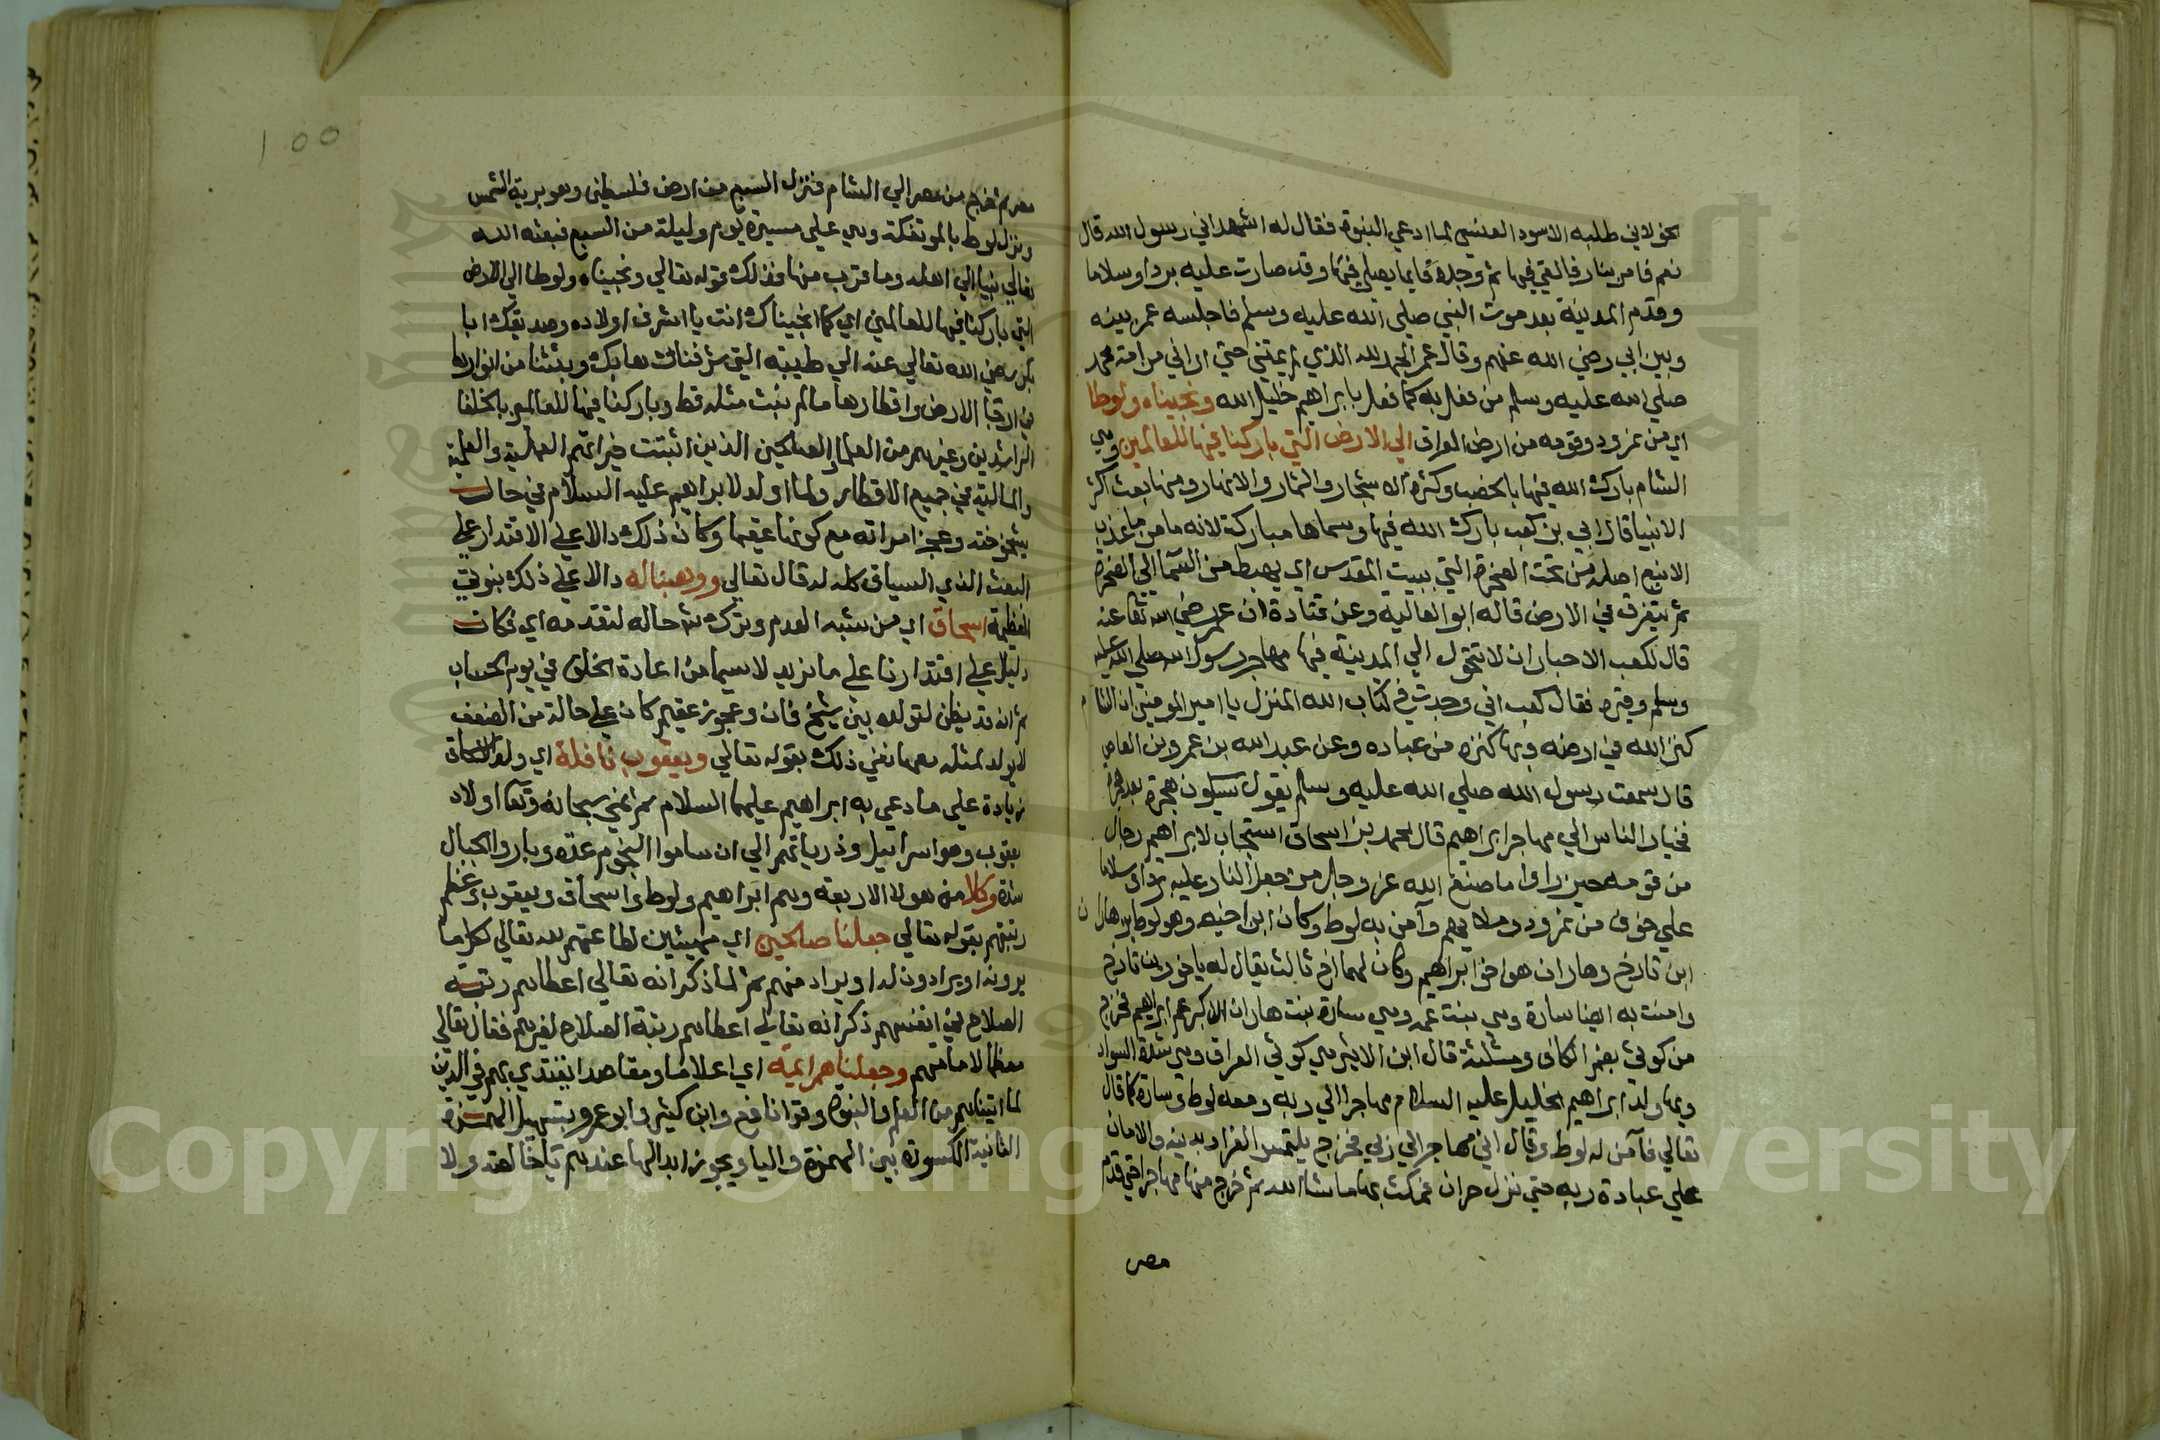 الخولاني طلبه الاسود العنسي لما ادعي النبوة فقال له اشهد اني رسول الله قال
نعم فامر بنار فالقي فيها ثم وجده قايما يصلي فيها وقد صارت عليه بردا وسلاما
وقدم المدينة بعد موت النبي صلي الله عليه وسلم فاجلسه عمر بينه
وبين ابي رضي الله عنهم وقال عمر الحمد لله الذي لم يمتني حتي اراني من امة محمد
صلي الله عليه وسلم من فعل به كما فعل بابراهيم خليل الله ونجيناه ولوطا
اي من نمرود وقومه من ارض العراق الي الارض التي باركنا فيها للعالمين وهي
الشام بارك الله فيها بالخصب وكثرة الاشجار والثمار والانهار ومنها بعث اكثر
الانبيا قال ابي بن كعب بارك الله فيها وسماها مباركة لانه ما من ما عذب
الا ينبع اصله من تحت الصخرة التي ببيت المقدس اي يهبط من السما الي الصخرة
ثم يتفرق في الارض قاله ابو العالية وعن قتادة ان عمر رضي الله تعا عنه
قال لكعب الاحبار ان لا تتحول الي المدينة فيها مهاجر رسول الله صلي الله عليه
وسلم وقبره فقال كعب اني وجدت في كتاب الله المنزل يا امير المومنين ان الشام
كنز الله في ارضه وبها كنزه من عباده وعن عبد الله بن عمرو بن العاص
قال سمعت رسول الله صلي الله عليه وسلم يقول ستكون هجرة بعد هجرة
فخيار الناس الي مهاجر ابراهيم قال محمد بن اسحاق استجاب لابراهيم رجال
من قومه حين راوا ما صنع الله عز وجل من جعل النار عليه بردا وسلاما
علي خوف من نمرود وملايهم وآمن به لوط وكان ابن اخيه وهو لوط بن هاران
ابن تارخ وهاران هو اخو ابراهيم وكان لهما اخ ثالث يقال له ياخور بن تارخ
وامنت به ايضا سارة وهي بنت عمه وهي سارة بنت هاران الاكبر عم ابراهيم فخرج
من كوثي بضم الكاف ومثلثة قال ابن الاثير هي كوثي العراق وهي سرة السواد
وبها ولد ابراهيم الخليل عليه السلام مهاجرا الي ربه ومعه لوط وسارة كما قال
تعالي فآمن له لوط وقال اني مهاجر الي ربي فخرج يلتمس الفرار بدينه والامان
علي عبادة ربه حتي نزل حران فمكث بها ما شا الله ثم خرج منها مهاجرا حتي قدم
مصر
١٥٥
مصر ثم خرج من مصر الي الشام فنزل السبع من ارض فلسطين وهو برية الشمس
ونزل لوط بالموتفكة وهي علي مسيرة يوم وليلة من السبع فبعثه الله
تعالي نبيا الي اهلها وما قرب منها فذلك قوله تعالي ونجيناه ولوطا الي الارض
التي باركنا فيها للعالمين اي كما انجيناك انت يا اشرف اولاده وصديقك ابا
بكر رضي الله تعالي عنه الي طيبة التي شرفناها بك وبثثنا من انوارها
في ارجا الارض واقطارها ما لم نبث مثله قط وباركنا فيها للعالمين بالخلفا
الراشدين وغيرهم من العلما والصالحين الذين انبثت خيراتهم العملية والعلمية
والمالية في جميع الاقطار ولما اولد لابراهيم عليه السلام في حال
شيخوخته وعجز امراته مع كونها عقيما وكان ذلك دالا علي الاقتدار علي
البعث الذي السياق كله له قال تعالي ووهبنا له دالا علي ذلك بنون
العظمة اسحاق اي من شبه العدم وترك شرح حاله لتقدمه اي فكان
دليلا علي اقتدارنا علي ما نريد لا سيما من اعادة الخلق في يوم الحساب
ثم انه قد يظن لتولده بين شيخ فان وعجوز عقيم كان علي حالة من الضعف
لا يولد لمثله معها نفي ذلك بقوله تعالي ويعقوب نافلة اي ولد اسحاق
زيادة علي ما دعي به ابراهيم عليهما السلام ثم انمي سبحانه وتعا اولاد
يعقوب وهو اسرائيل وذرياتهم الي ان ساموا النجوم عدة وباروا الجبال
شدة وكلا من هولا الاربعة وهم ابراهيم ولوط واسحاق ويعقوب وعظم
رتبتهم بقوله تعالي جعلنا صالحين اي مهيئين لطاعتهم لله تعالي لكل ما
يرونه او يرادون له او يراد منهم ثم لما ذكر انه تعالي اعطاهم رتبة
الصلاح في انفسهم ذكر انه تعالي اعطاهم رتبة الصلاح لغيرهم فقال تعالي
معظما لامامتهم وجعلناهم ايمة اي اعلاما ومقاصد يقتدي بهم في الدين
لما اتيناهم من العلم والنبوة وقرا نافع وابن كثير وابو عمرو بتسهيل الهمزة
الثانية المكسورة بين الهمزة واليا ويجوز ابدالها عندهم يا خالصة ولا
Copyright © King Saud University